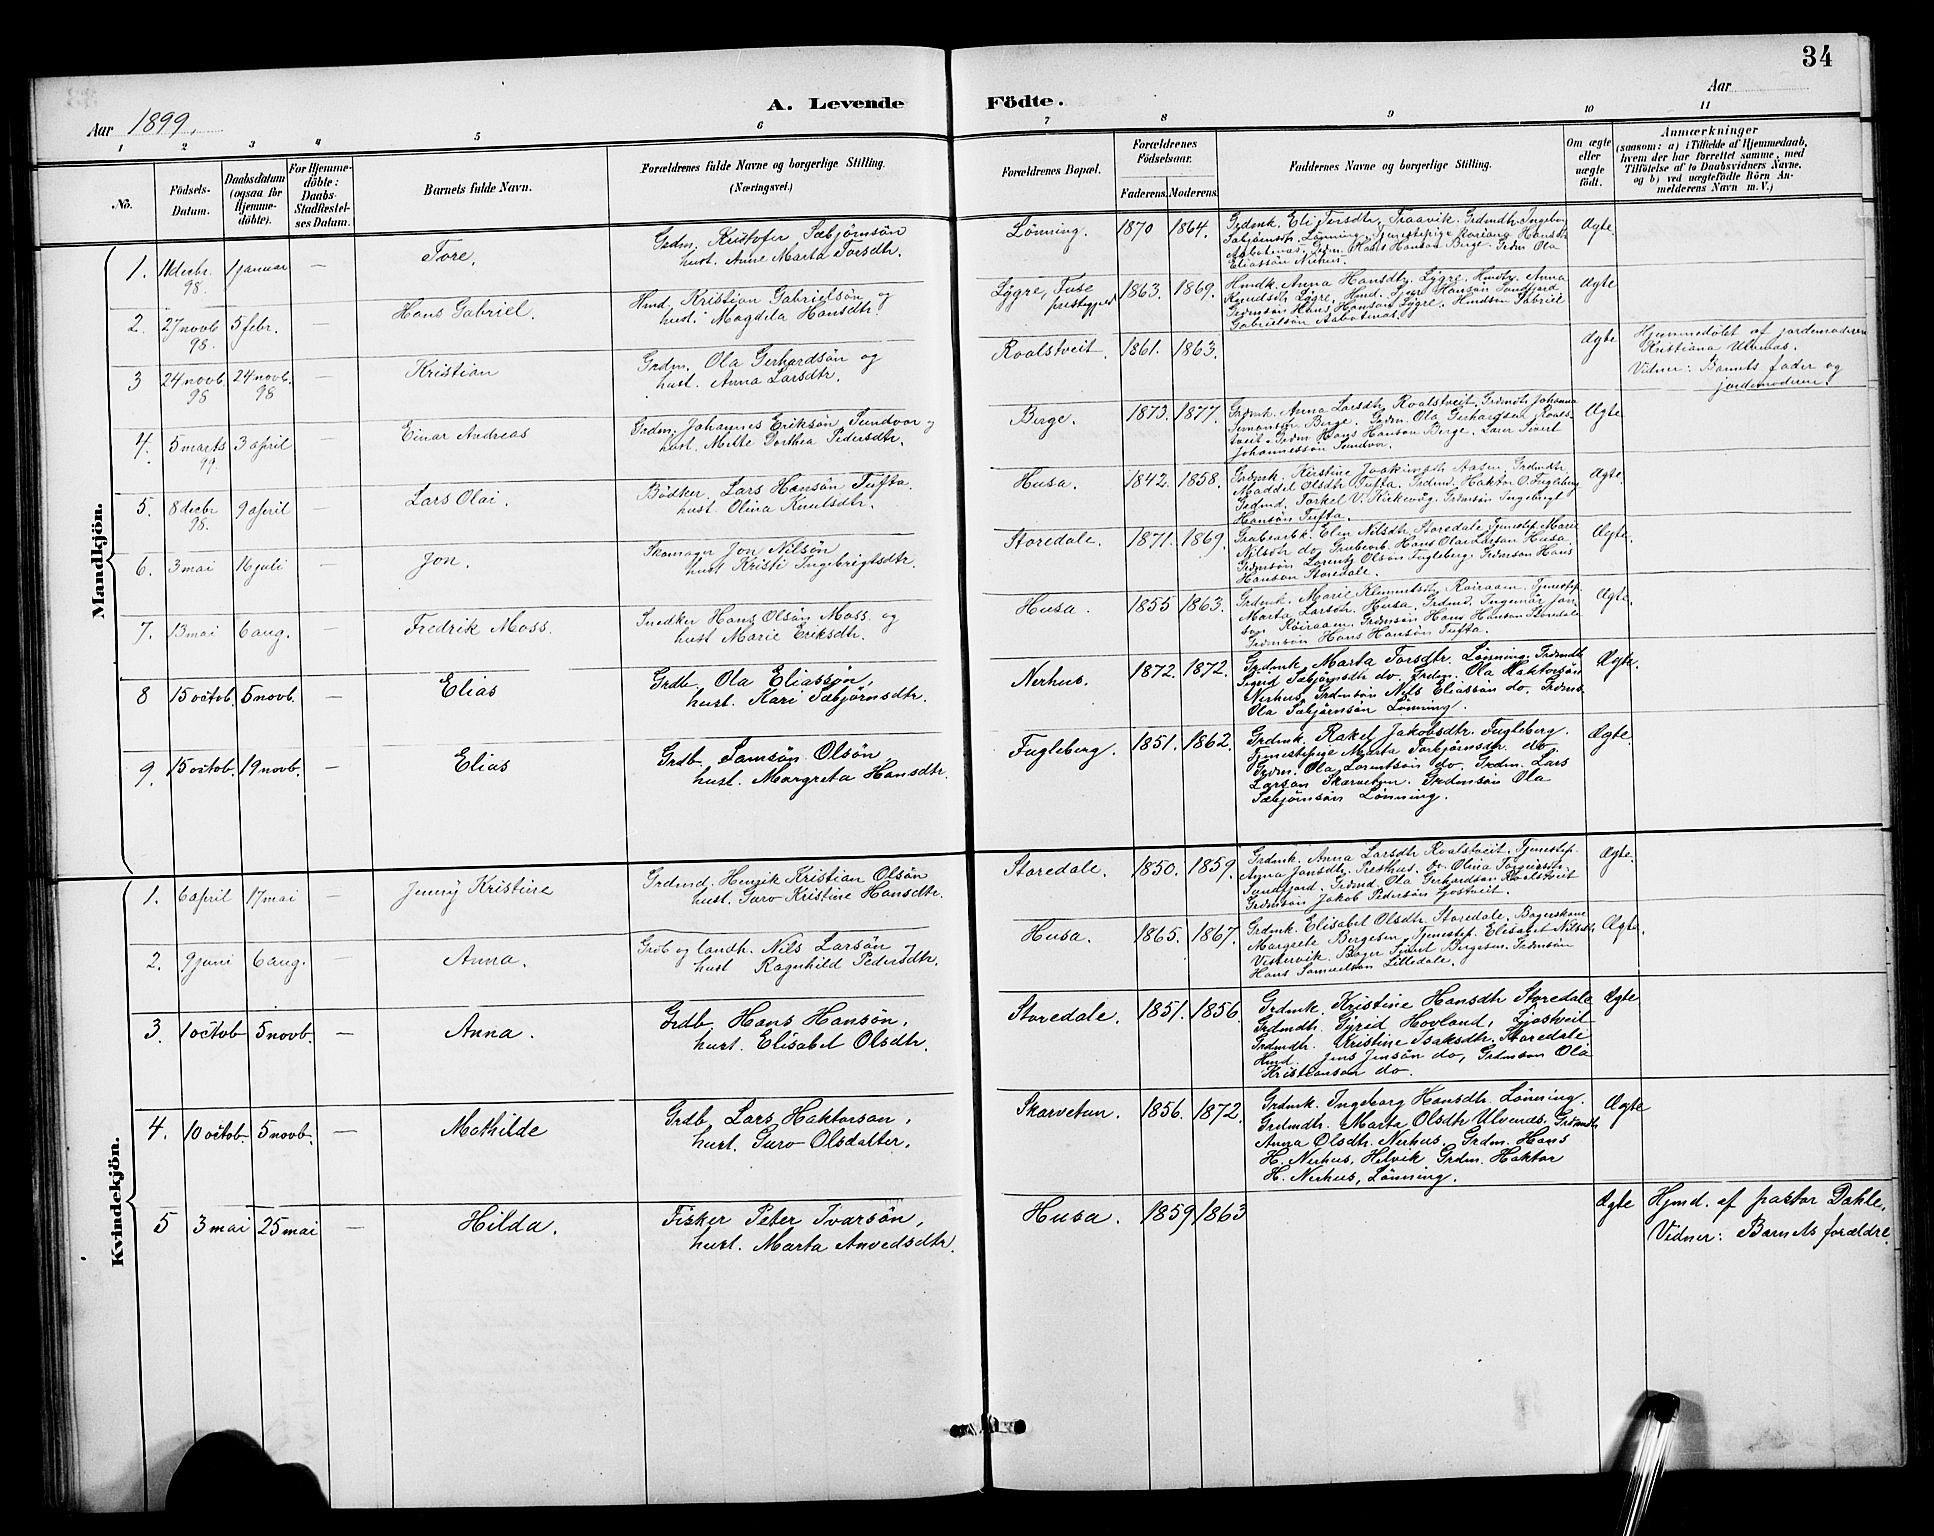 34
A. Levende Födte.
Aar 1899.
Aar
1 2 3 4 5 6 7 8 9 10 11
No.
Födsels-Datum.
Daabsdatum (ogsaa for Hjemmedöbte).
For Hjemmedöbte: Daabs-Stadfæstelses Datum.
Barnets fulde Navn.
Forældrenes fulde Navne og borgerlige Stilling.
(Næringsvei.)
Forældrenes Bopæl.
Forældrenes Födselsaar.
Faderens. Moderens.
Faddernes Navne og borgerlige Stilling.
Om ægte eller uægte födt.
Anmærkninger
(saasom: a) i Tilfælde af Hjemmedaab,
hvem der har forrettet samme, med
Tilföielse af to Daabsvidners Navne,
og b) ved uægtefödte Börn Anmelderens Navn m. V.)
Mandkjön.
1. 11 decbr. 98. 1 januar — Tore,
Grdm. Kristofer Sæbjörnsön
hust. Anne Marta Torsdtr.
Lönning. 1870 1864.
Grdmk. Eli Torsdtr. Traavik. Grdmdtr. Ingeborg
Sæbjörnsdtr. Lönning. Tjenestepige Hansdtr.
Aabotnæs, Grdm. Hans Hanson Berge. Grdm Ola
Eliassön Nerhus.
Ægte.
2. 27 novb. 98. 5 febr. — Hans Gabriel.
Hmd. Kristian Gabrielsön og
hust. Magdela Hansdtr.
Lygre, Fuse prestegjeld 1863. 1869.
Hmdk. Anna Hansdtr. Lygre. Anna
Knudsdtr. Lygre, Hmd. Hansön Sandfjord
Grdmsön Hans Hansön Lygre, Hmdsön Gabriel
Gabrielsön Aabotnæs.
Ægte
3 24 novb. 98 24 novb. 98 — Kristian
Grdm. Ola Gerhardsön og
hust. Anna Larsdtr.
Roalstveit. 1861. 1863.
Ægte
Hjemmedöbt af jordemoderen
Kristiana Ulvenæs.
Vidner: Barnets fader og
jordemoderen.
4. 5 marts 99. 3 april — Einar Andreas
Grdm. Johannes Eriksön Sundvor og
hust. Mette Dorthea Pedersdtr.
Berge. 1873. 1877.
Grdmk. Anna Larsdtr Roalstveit. Grdmdtr. Johanna
Simonsen Berge. Grdm. Ola Gerhardsen Roalstveit.
Grdm Hans Hanson Berge. Lærer Sivert
Johannessön Sundvor.
Ægte
5. 8 decbr 98. 9 april — Lars Olai.
Bödker. Lars Hansön Tufta.
hust. Olina Knutsdtr.
Husa. 1842. 1858.
Grdmk. Kirstine Joakimsdtr Aasen, Grdmdtr.
Maddel Olsdtr Tufta. Grdmd. Haktor O. Fugleberg
Grdmd. Torkel V. Kirkevaag. Grdmsön Ingebrigt
Hansön Tufta.
Ægte.
6. 3 mai 16 juli — Jon.
Skomager Jon Nilsön
hust Kristi Ingebrigtsdtr.
Storedale. 1871. 1869.
Grubearbk. Elen Nilsdtr Storedale Tjenestep. Marie
Nilsdtr do Grubearb. Hans Olai Larsön Husa.
Grdmsön Lorentz Olsön Fugleberg. Grdmsön Hans
Hansön Storedale.
Ægte.
7. 13 mai 6 aug. — Fredrik Moss.
Snedker Hans Olsön Moss. og
hust Marie Eriksdtr.
Husa. 1855 1863.
Grdmk. Marie Klemmetsdtr. Röiraam, Tjenestep.
Marta Larsdtr. Husa. Grdmd. Ingemar Jonson
Röiraam. Grdmsön Hans Hanson Storedale
Grdmsön Hans Hansön Tufta.
Ægte.
8 15 octob. 5 novb. — Elias
Grdb. Ola Eliassön,
hust. Kari Sæbjörnsdtr.
Nerhus. 1872. 1872.
Grdmk. Marta Torsdtr. Lönning. Grdmdtr.
Sigrid Sæbjörnsdtr do, Grdm. Ola Haktorsön
Nerhus, Grdmsön Nils Eliassön do, Grdms.
Ola Sæbjörnsön Lönning.
Ægte.
9. 15 octob. 19 novb. — Elias
Grdb. Samsön Olsön
hust. Margreta Hansdtr.
Fugleberg. 1851. 1862.
Grdmk. Rakel Jakobsdtr. Fugleberg.
Tjenestepige Marta Torbjörnsdtr. do.
Grdm. Ola Lorentsön do. Grdm. Lars
Larsön Skarvetun. Grdmsön Ola
Sæbjörnsön Lönning.
Ægte.
Kvindekjön.
1. 6 april 17 mai — Jenny Kristine
Grdmd. Henrik Kristian Olsön
hust. Guro Kristine Hansdtr.
Storedale. 1850. 1859.
Grdmk. Anna Larsdtr Roalstveit. Tjenestep.
Anna Jonsdtr. Presthus. Olina Torgeirsdtr
Sandfjord. Grdmd Ola Gerhardsön Roalstveit
Grdmsön Jakob Pedersön Ljostveit.
Ægte.
2. 9 juni 6 aug. — Anna.
Grdb og landh. Nils Larsön
hust Ragnhild Pedersdtr.
Husa. 1865. 1867.
Grdmk. Elisabet Olsdtr. Storedale. Bagerskone
Margrete Bergesen, Tjenestep. Elisabet Nilsdtr
Vistervik. Bager Sivert Bergesen. Grdmsön
Hans Samuelsön Lilledale.
Ægte.
3. 1 octob 5 novb. — Anna.
Grdb, Hans Hansön,
hust. Elisabet Olsdtr.
Storedale. 1851. 1856.
Grdmk. Kristine Hansdtr Storedale
Grdmdtr. Gyrid Hovland, Ljostveit
Grdmdtr. Kristine Isaksdtr, Storedale
Hmd. Jens Jensön do, Grdmsön Ola
Kristiansön do.
Ægte
4. 10 octob. 5 novb. — Mathilde
Grdb Lars Haktorsön,
hust. Guro Olsdatter.
Skarvetun. 1856. 1872.
Grdmk. Ingeborg Hansdtr. Lönning.
Grdmdtr. Marta Olsdtr Ulvenæs. Grdmdtr
Anna Olsdtr. Nerhus. Grdm. Hans
H. Nerhus, Helvik Grdm. Haktor
H. Nerhus, Lönning.
Ægte
5 3 mai 25 mai — Hilda.
Fisker Peter Ivarsön,
hust. Marta Anvedsdtr.
Husa. 1859 1863
Ægte
Hjmd. af pastor Dahle.
Vidner: Barnets forældre.